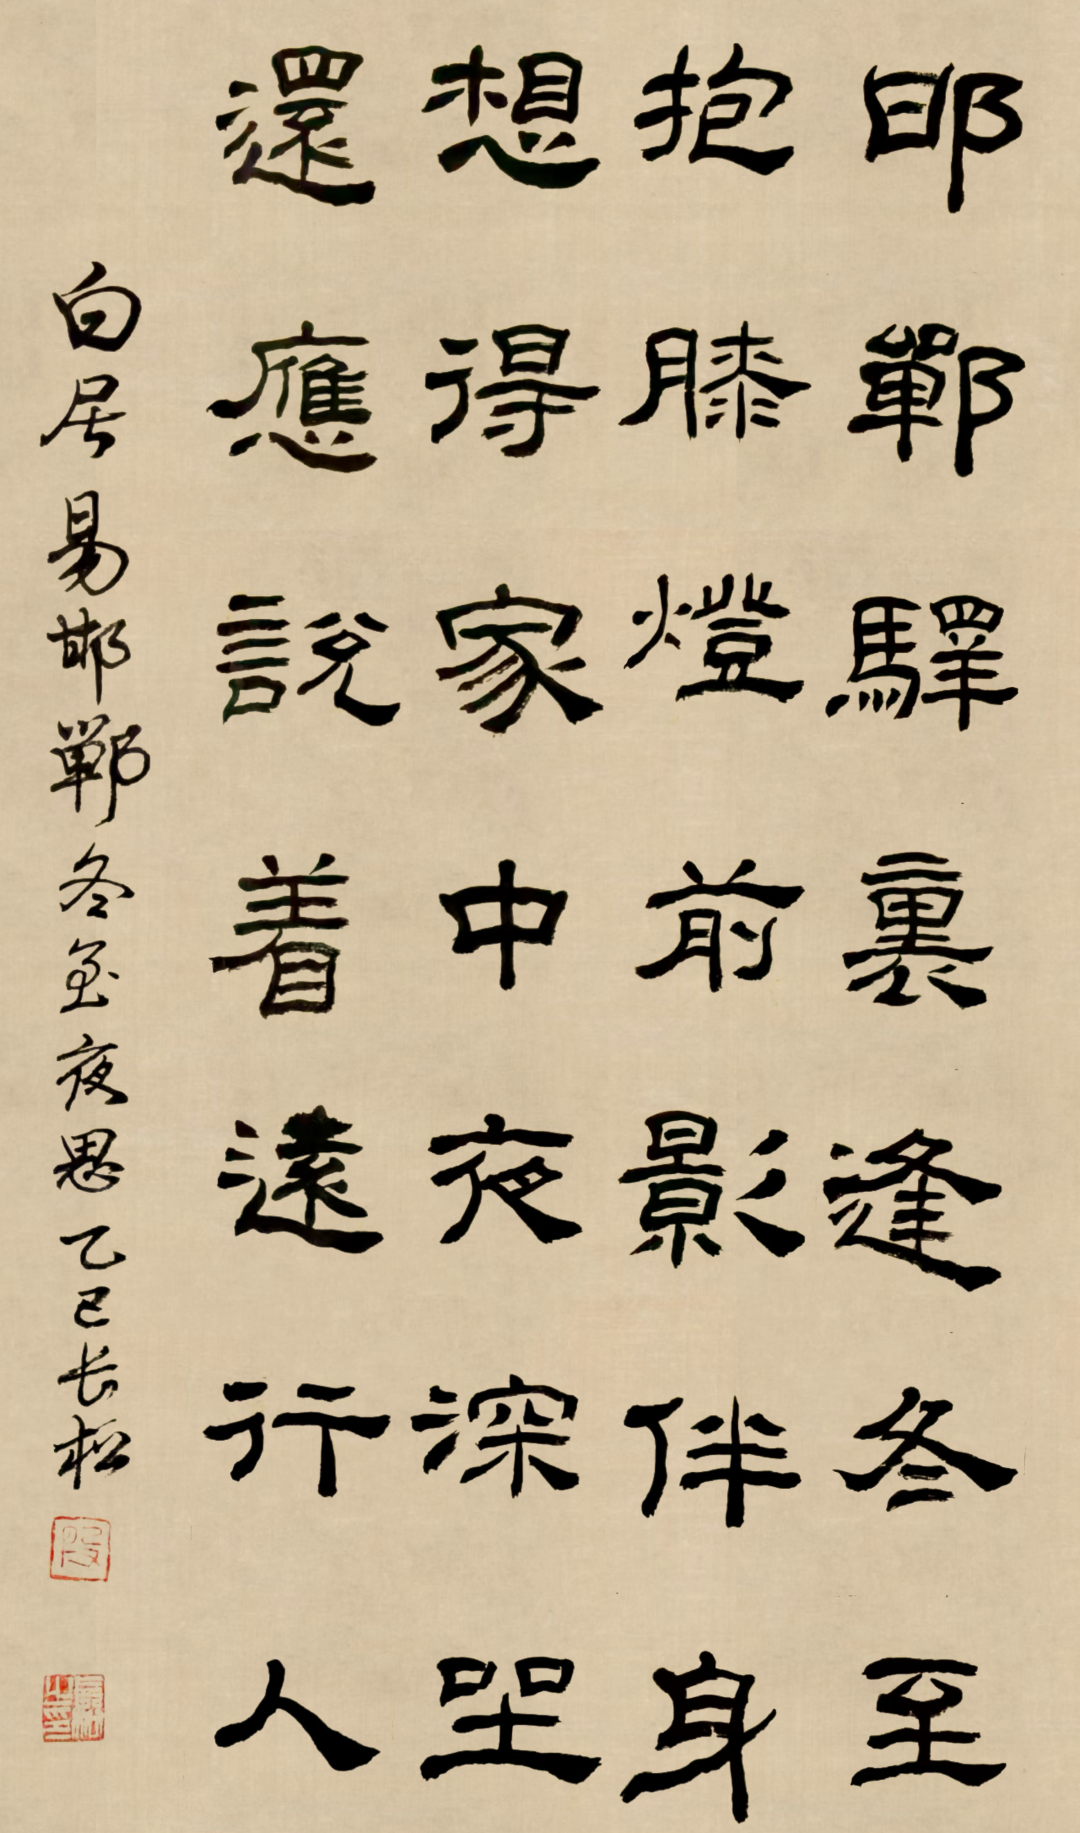 邯鄲驛裏逢冬至
抱膝燈前影伴身
想得家中夜深坐
還應說着遠行人
白居易邯鄲冬至夜思乙巳长松